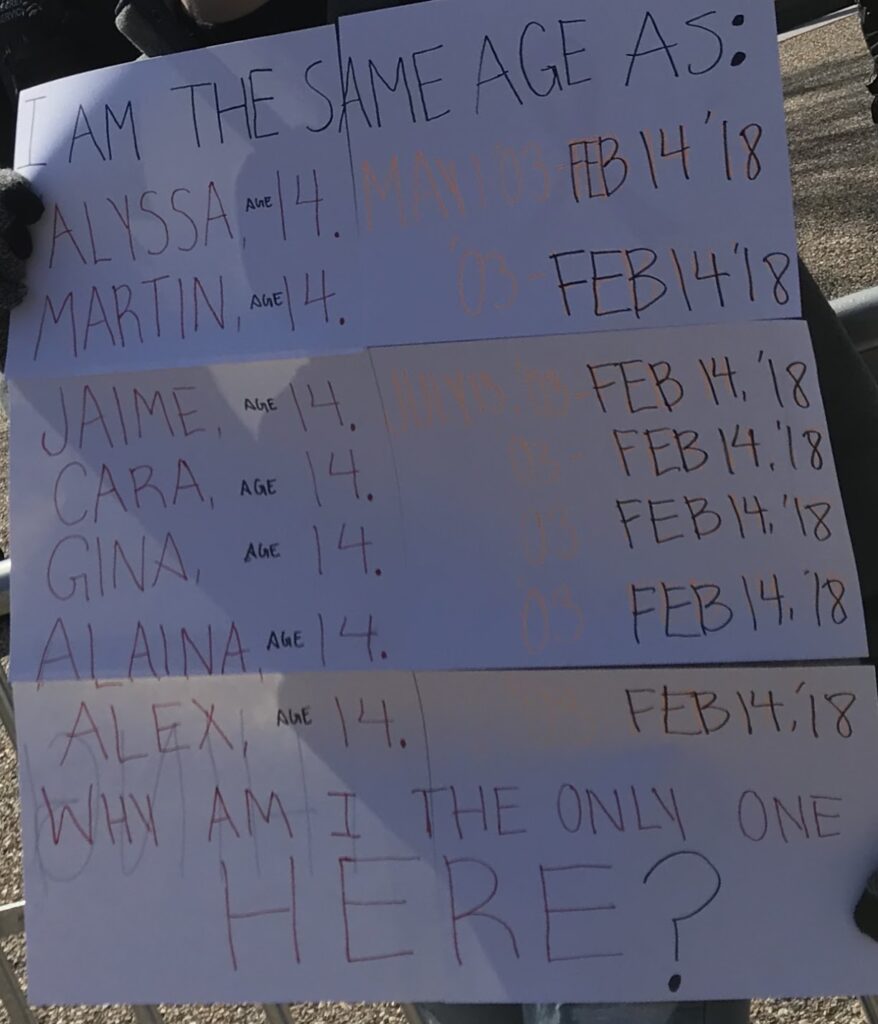 I AM THE SAME AGE AS:
ALYSSA, AGE 14. MAY 1 03- FEB 14 '18
MARTIN, AGE 14. '03- FEB 14 '18
JAIME, AGE 14. '03- FEB 14, '18
CARA, AGE 14. 03- FEB 14, '18
GINA, AGE 14. 03 FEB 14, '18
ALAINA, AGE 14. '03 FEB 14, '18
ALEX, AGE 14. FEB 14, '18
WHY AM I THE ONLY ONE
HERE?